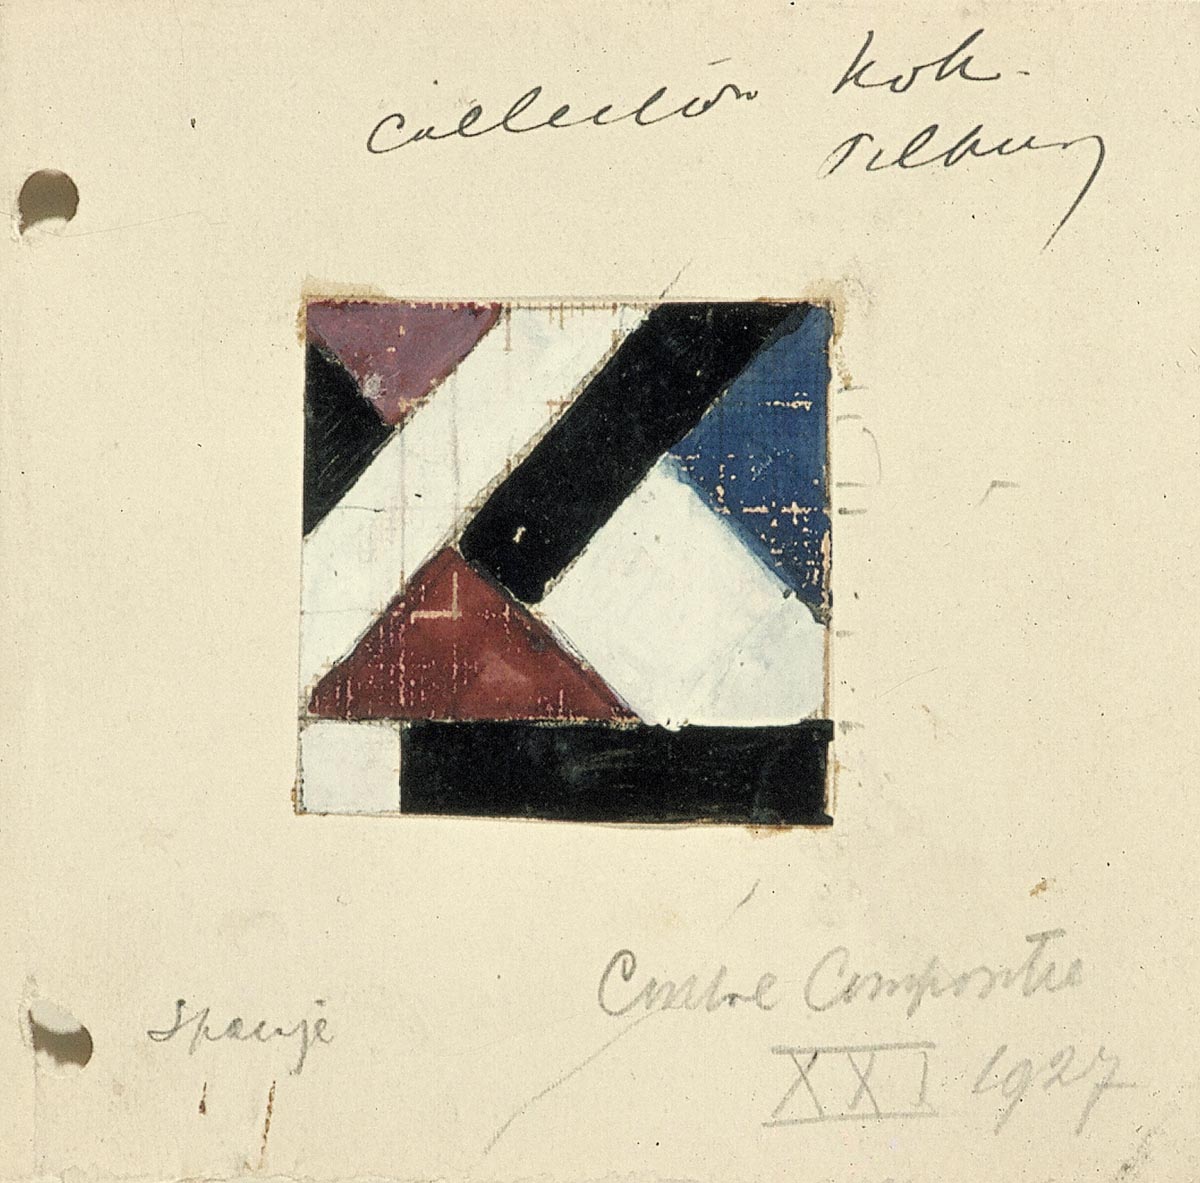 Collection Kok.
Tilburg
Spanje
Contre Compositie
XXI 1927